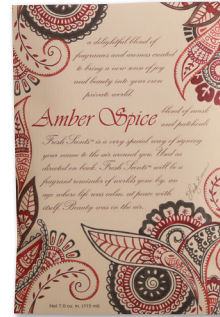 a delightful blend of
fragrances and aromas created
to bring a new sense of joy
and beauty into your own
private world.
Amber Spice
blend of musk
and patchouli
Fresh Scents™ is a very special way of signing
your name to the air around you. Used as
directed on back, Fresh Scents™ will be a
fragrant reminder of worlds gone by, an
age when life was calm, at peace with
itself. Beauty was in the air.
Net 7.0 cu. in. (115 ml)